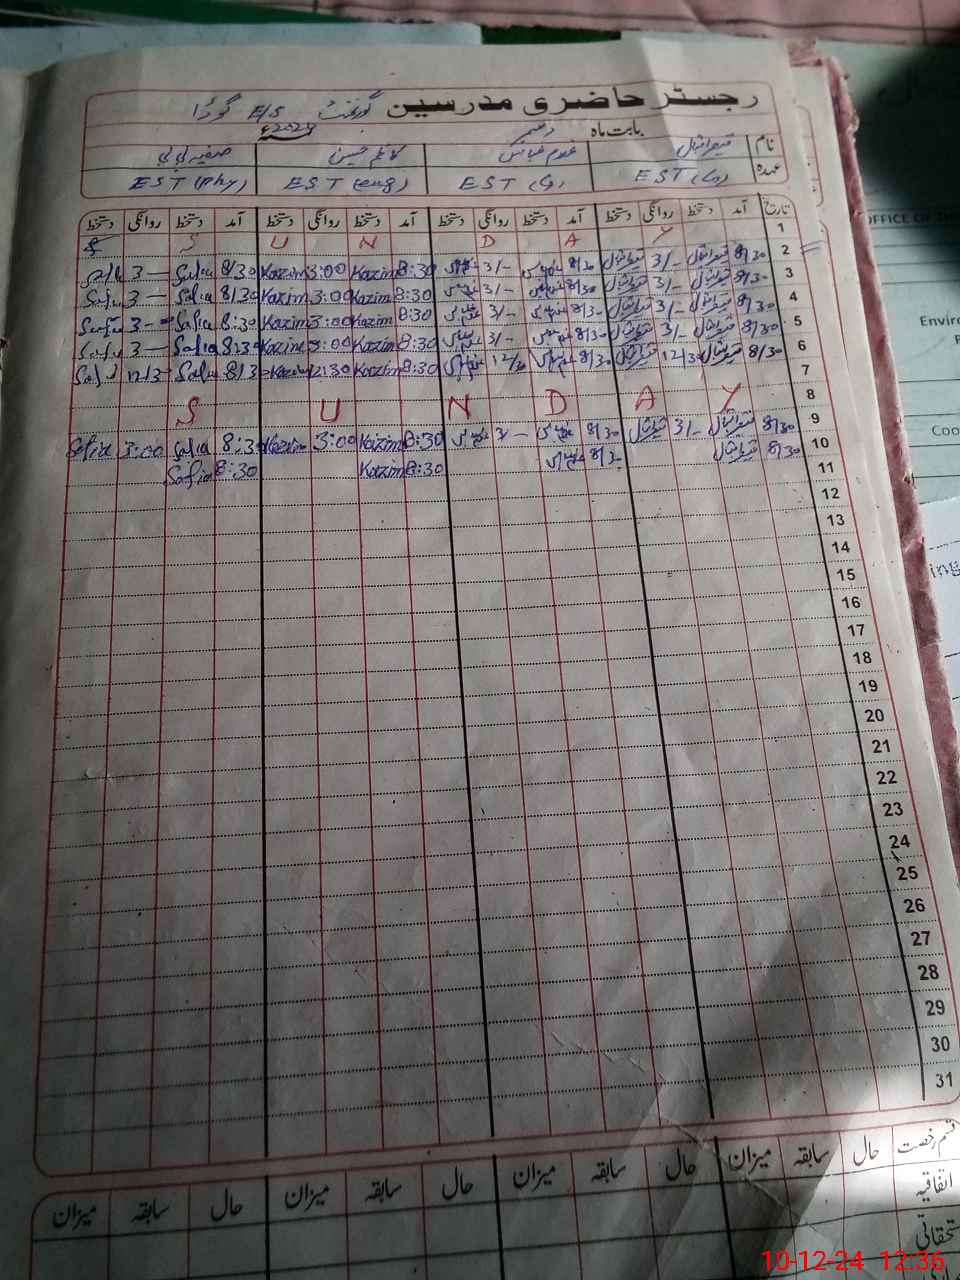 رجسٹر حاضری مدرسین گورنمنٹ E/S گوڑا
بابت ماہ دسمبر 2024ء
نام قیصر اقبال غلام عباس کاظم حسین صفیہ بی بی
عہدہ EST EST EST (eng) EST (phy)
تاریخ آمد دستخط روانگی دستخط آمد دستخط روانگی دستخط آمد دستخط روانگی دستخط آمد دستخط روانگی دستخط
1 S U N D A Y
2 8/30 قیصر اقبال 3/- قیصر اقبال 8/30 3/- 8:30 Kazim 3:00 Kazim 8/30 Safia 3 —
3 8/30 قیصر اقبال 3/- قیصر اقبال 8/30 3/- 8:30 Kazim 3:00 Kazim 8/30 Safia 3 —
4 8/30 قیصر اقبال 3/- قیصر اقبال 8/30 3/- 8:30 Kazim 3:00 Kazim 8:30 Safia 3 —
5 8/30 قیصر اقبال 3/- قیصر اقبال 8/30 3/- 8:30 Kazim 3:00 Kazim 8:30 Safia 3 —
6 8/30 قیصر اقبال 12/30 قیصر اقبال 8/30 12/30 8:30 Kazim 12:30 Kazim 8/30 Safia
7
8 S U N D A Y
9 8/30 قیصر اقبال 3/- قیصر اقبال 8/30 3 — 8:30 Kazim 3:00 Kazim 8:30 Safia 3:00 Safia
10 8/30 قیصر اقبال 8/30 8:30 Kazim 8:30 Safia
11
12
13
14
15
16
17
18
19
20
21
22
23
24
25
26
27
28
29
30
31
قسم رخصت حال سابقہ میزان حال سابقہ میزان حال سابقہ میزان حال سابقہ میزان
اتفاقیہ
OFFICE OF TH
Enviro
Coo
ing
10-12-24 12:36